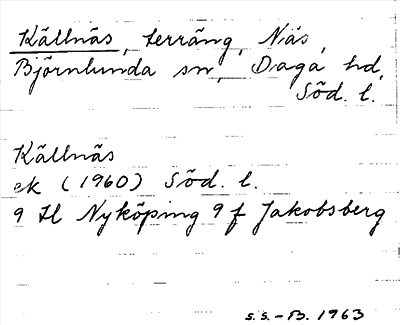 Källnäs, terräng, Näs,
Björnlunda sn, Daga hd,
Söd. l.
Källnäs
ek (1960) Söd. l.
9 H Nyköping 9 f Jakobsberg
S.S.-B. 1963